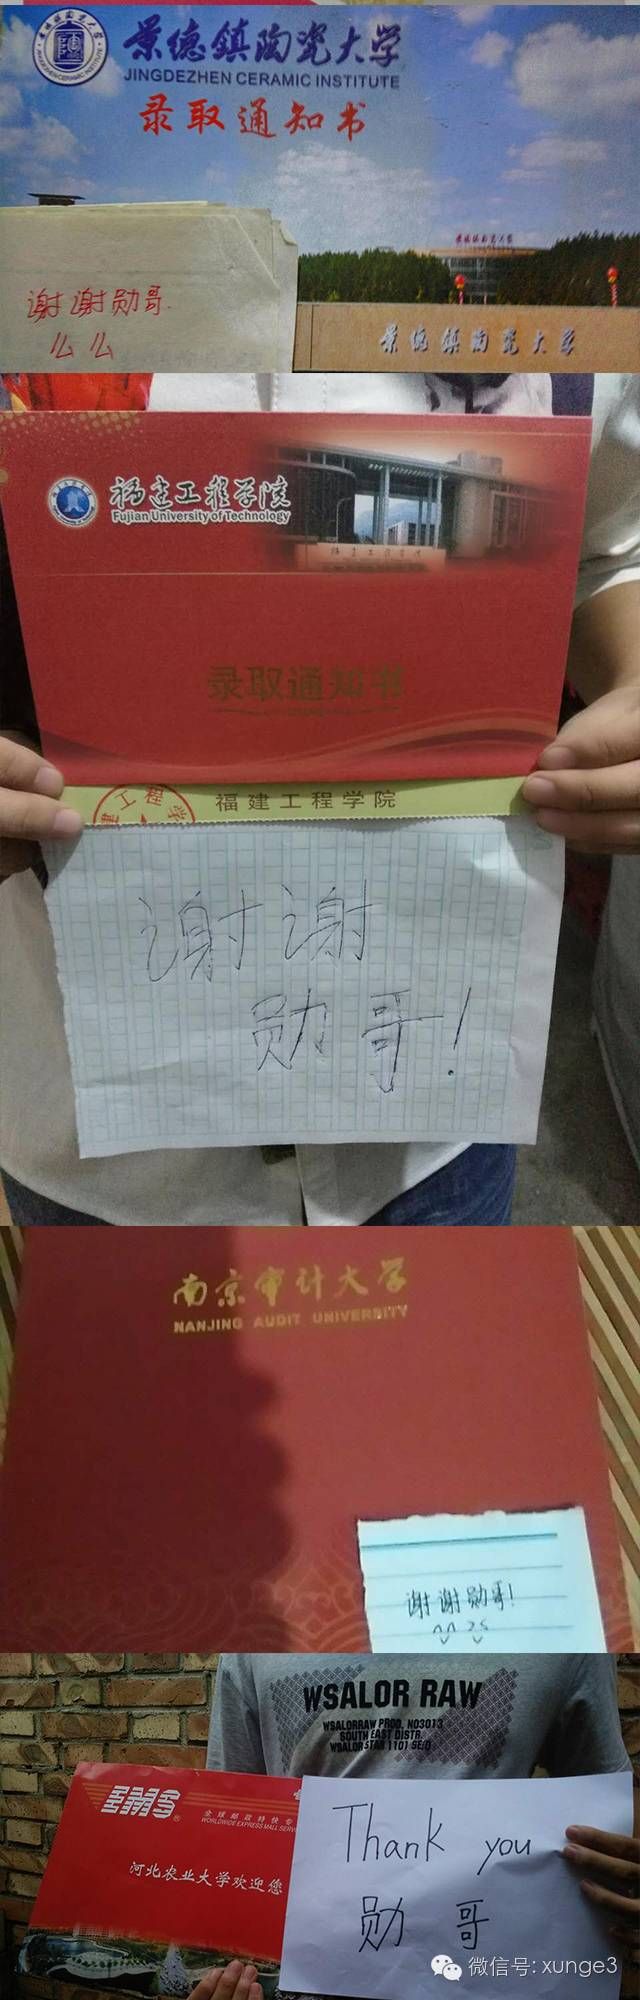 景德鎮陶瓷大学
JINGDEZHEN CERAMIC INSTITUTE
录取通知书
景德鎮陶瓷大学
谢谢勋哥.
么么
景德鎮陶瓷大学
福建工程学院
Fujian University of Technology
福建工程学院
录取通知书
建工程学
福建工程学院
谢谢
勋哥!
南京审计大学
NANJING AUDIT UNIVERSITY
谢谢勋哥!
WSALOR RAW
WSALORRAW PROD. NO3013
SOUTH EAST DISTR.
WSALOR STAR 1101 SE/D
EMS
全球邮政特快专
WORLDWIDE EXPRESS MAIL SERV
河北农业大学欢迎您
Thank you
勋哥
微信号: xunge3